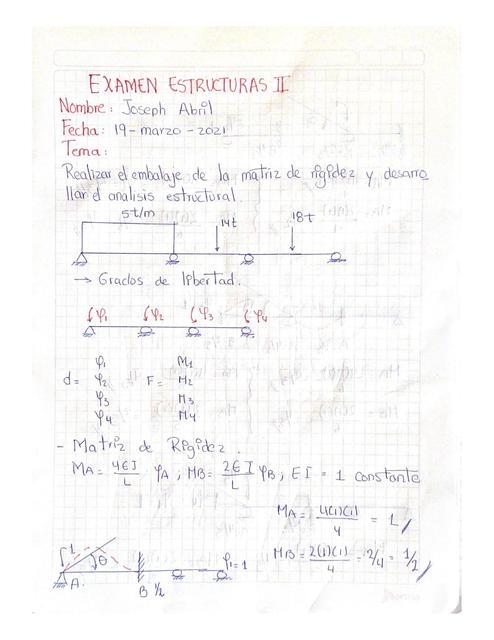 EXAMEN ESTRUCTURAS II
Nombre: Joseph Abril
Fecha: 19-marzo-2021
Tema:
Realizar el embalaje de la matriz de rigidez y desarro
llar el analisis estructural.
5t/m 14t 18t
→ Grados de libertad.
φ1 φ2 φ3 φ4
φ1 M1
d= φ2 F= M2
φ3 M3
φ4 M4
- Matriz de Rigidez.
MA= 4EI/L φA ; MB= 2EI/L φB ; EI = 1 constante
MA= 4(1)(1)/4 = 1
MB= 2(1)(1)/4 = 2/4 = 1/2
1 θ φ1=1
A. B 1/2